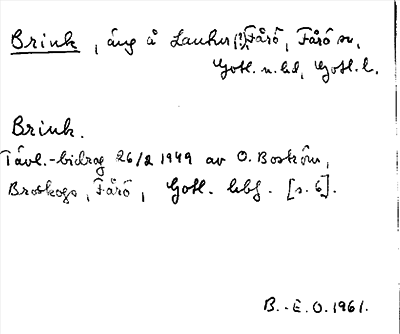 Brink, äng å Lauhu (?), Fårö, Fårö sn,
Gotl. n. hd, Gotl. l.
Brink.
Tävl.-bidrag 26/2 1949 av O. Boström,
Broskogs, Fårö, Gotl. hbf. [s. 6].
B.-E.O. 1961.